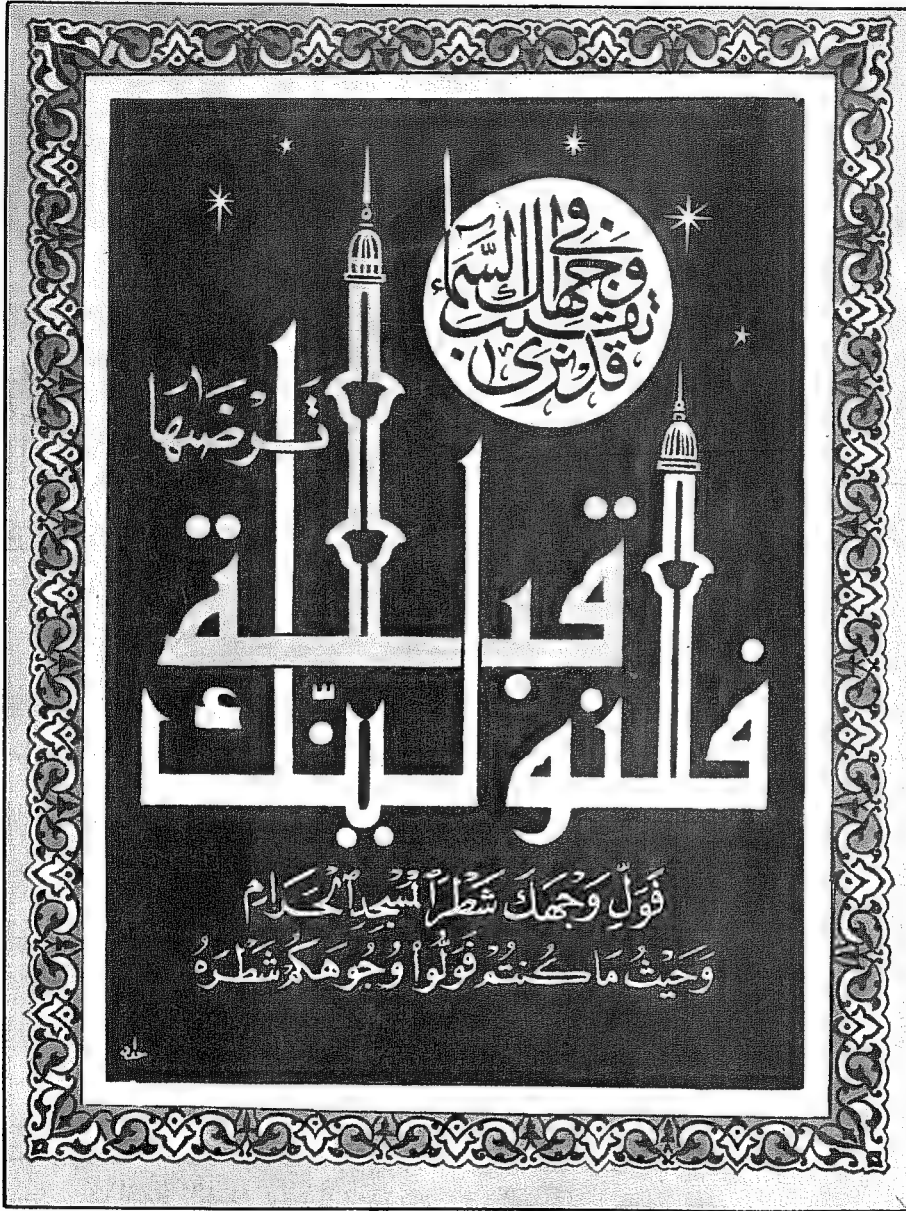 قد نرى تقلب وجهك في السماء
فلنولينّك
قبلة
ترضىها
فَوَلِّ وَجْهَكَ شَطْرَ ٱلْمَسْجِدِ ٱلْحَرَامِ
وَحَيْثُ مَا كُنتُمْ فَوَلُّوا۟ وُجُوهَكُمْ شَطْرَهُ